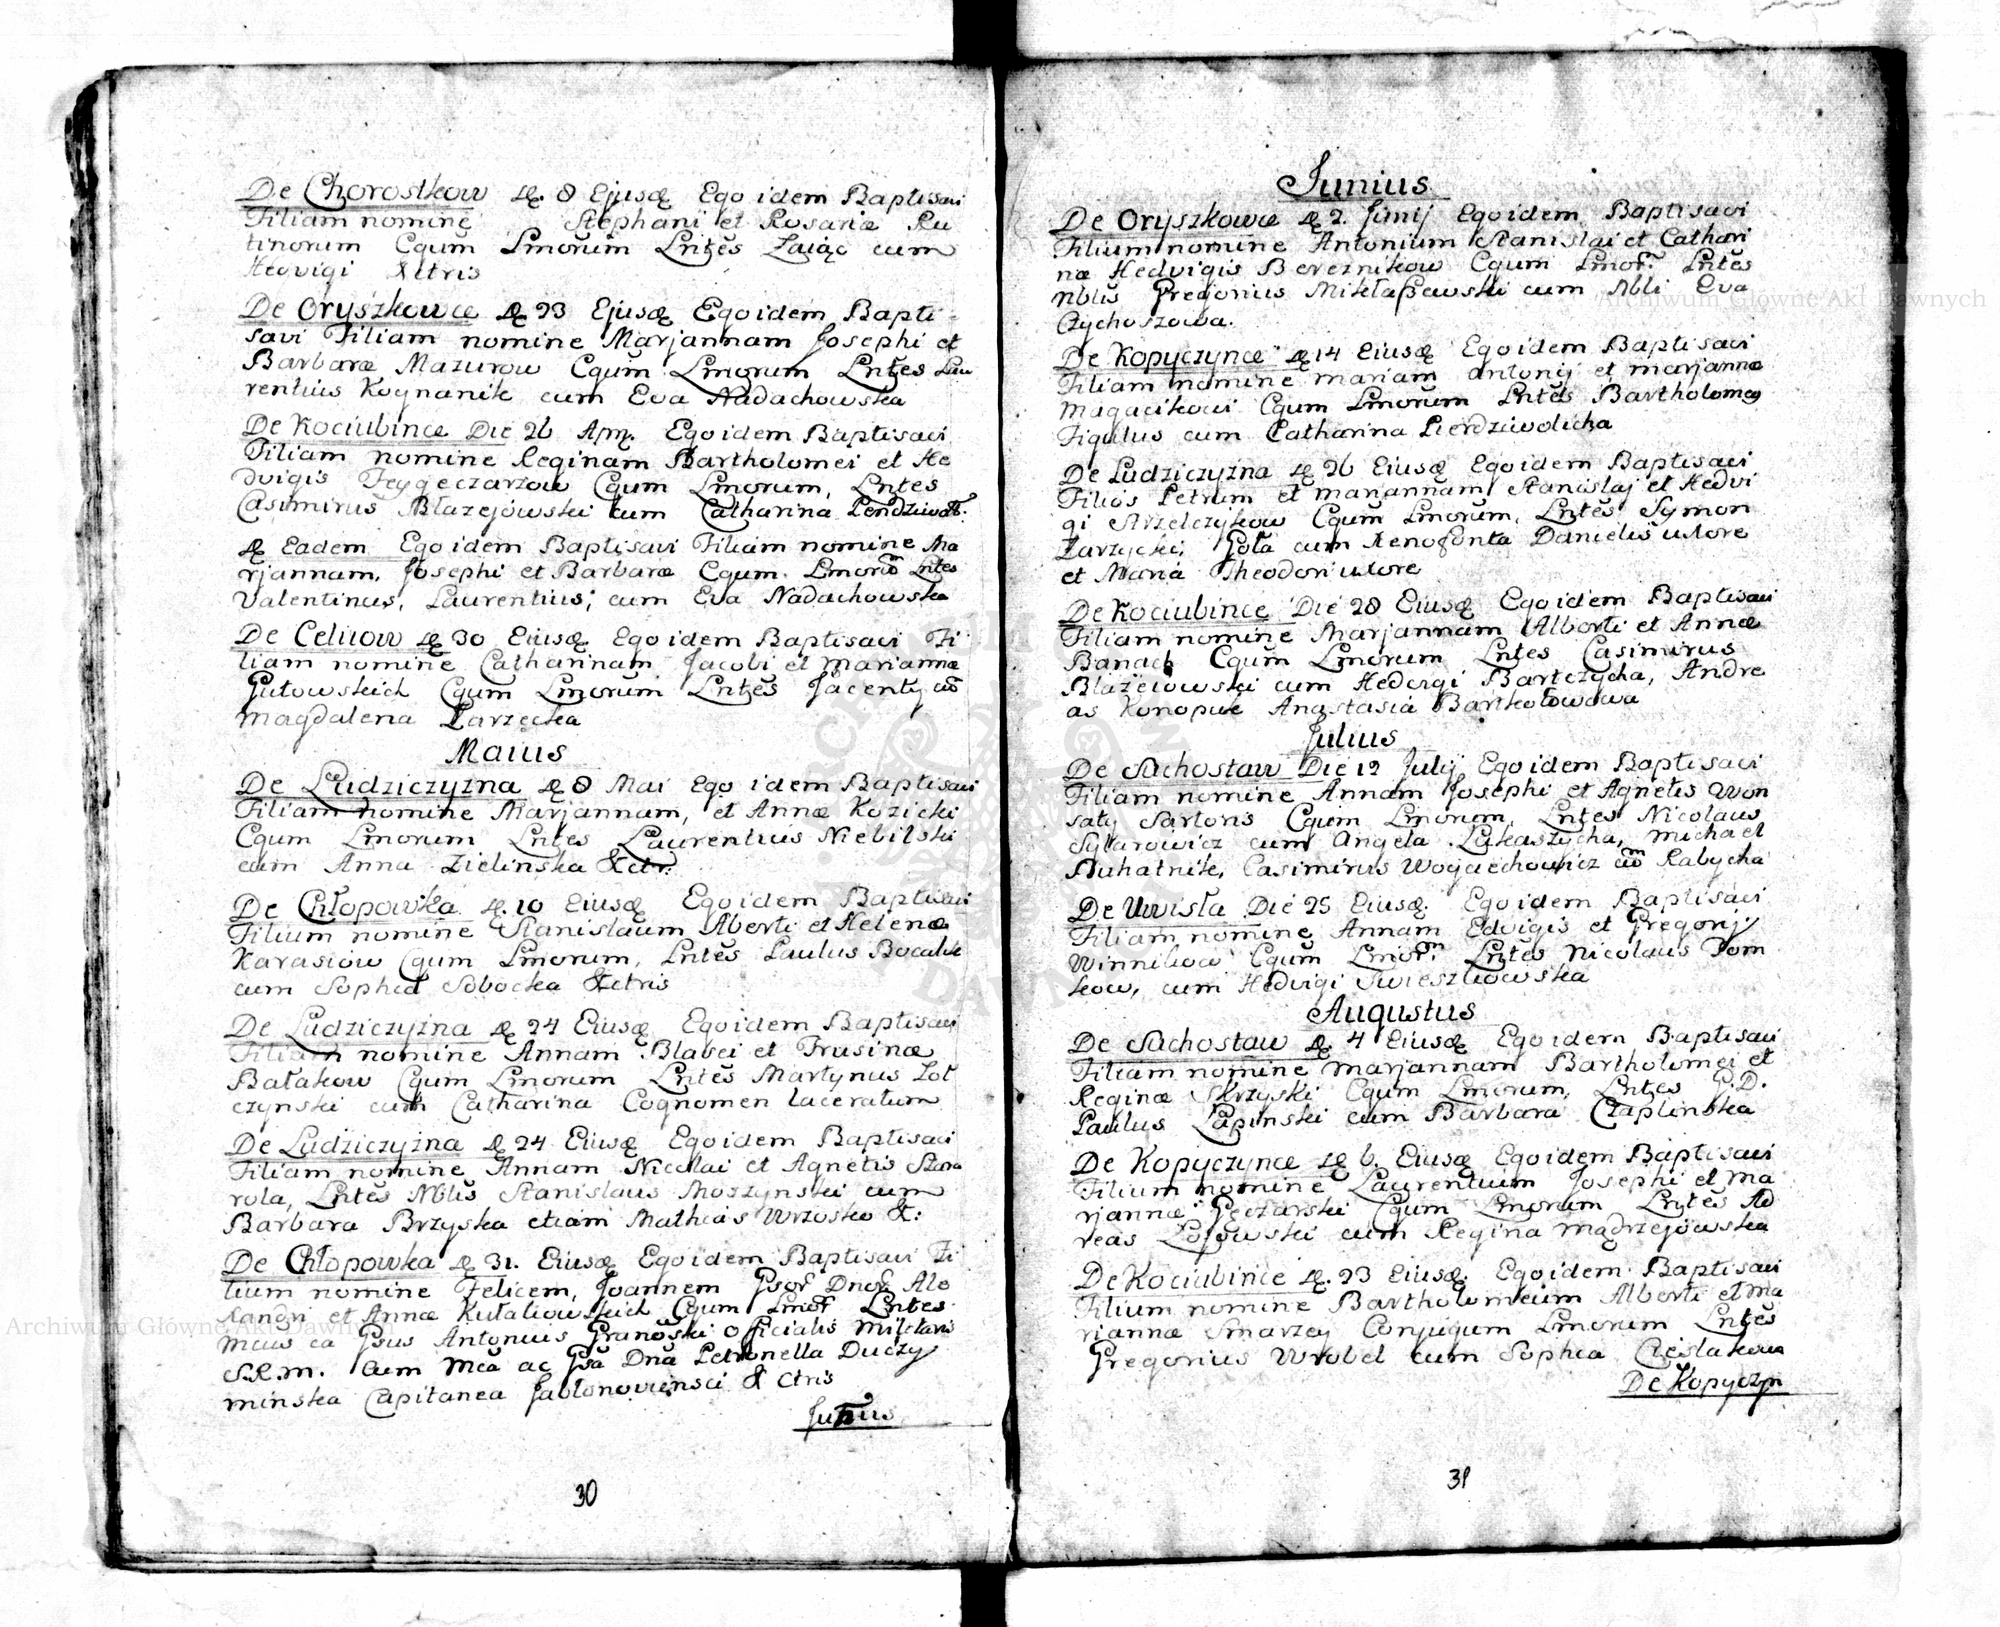 De Chorostkow d. 8 Ejusd Ego idem Baptisavi
Filiam nomine Stephani et Rosariæ Ru
tinorum Cgum Lmorum Lntes Zaiąc cum
Hedvigi Xtris
De Oryszkowce d 23 Ejusd Ego idem Bapti
savi Filiam nomine Marjannam Josephi et
Barbaræ Mazurow Cgum Lmorum Lntes Lau
rentius Koynanik cum Eva Nadachowska
De Kociubince Die 26 Apr. Ego idem Baptisavi
Filiam nomine Reginam Bartholomei et He
dvigis Cgum Lmorum, Lntes
Casimirus Błazejowski cum Catharina
d Eadem Ego idem Baptisavi Filiam nomine Ma
rjannam, Josephi et Barbaræ Cgum Lmorum Lntes
Valentinus, Laurentius, cum Eva Nadachowska
De Celiiow d 30 Ejusd Ego idem Baptisavi Fi
liam nomine Catharinam Jacobi et Mariannæ
Gutowskich Cgum Lmorum Lntes Jacenty cum
Magdalena Zarzecka
Maius
De Ludziczyzna d 8 Mai Ego idem Baptisavi
Filiam nomine Marjannam, et Annæ Kozicki
Cgum Lmorum Lntes Laurentius Niebilski
cum Anna Zielinska Xctr.
De Chłopowka d. 10 Eiusd Ego idem Baptisavi
Filium nomine Stanislaum Alberti et Helenæ
Karasiow Cgum Lmorum, Lntes Paulus Bocalik
cum Sophia Sobocka Xctris
De Ludziczyzna d 24 Eiusd Ego idem Baptisavi
Filiam nomine Annam Blasei et Frusinæ
Bałakow Cgum Lmorum Lntes Martynus Zoł
czynski cum Catharina Cognomen laceratum
De Ludziczyzna d 24 Eiusd Ego idem Baptisavi
Filiam nomine Annam Nicolai et Agnetis
rola, Lntes Nblis Stanislaus Moszynski cum
Barbara Brzyska etiam Mathias Wrzosko X:
De Chłopowka d 31. Eiusd Ego idem Baptisavi Fi
lium nomine Felicem, Joannem Gsor Dnor Ale
xandri et Annæ Kułakowskich Cgum Lmor Lntes
Mcus ea Gsus Antonius Granowski officialis Militaris
S.R.M. cum Mca ac Gsa Dna Petronella Duczy
minska Capitanea Jabłonoviensci X Ctris
Junius
30
Junius
De Oryszkowce d 2. Junij Ego idem Baptisavi
Filium nomine Antonium Stanislai et Cathari
næ Hedvigis Bereznikow Cgum Lmor. Lntes
Nblis Gregorius Mikłaszewski cum Nbli Eva
Czychoszowa.
De Kopyczynce d 14 Eiusd Ego idem Baptisavi
Filiam nomine Mariam Antonij et Marjannæ
Magacikowi Cgum Lmorum Lntes Bartholomeus
Figulus cum Catharina Pierdziwolicha
De Ludziczyzna d 26 Eiusd Ego idem Baptisavi
Filios Petrum et Mariannam Stanislaj et Hedvi
gi Strzelczykow Cgum Lmorum, Lntes Symon
Zarzycki, Gota cum Xenofonta Danielis uxore
et Maria Theodori uxore
De Kociubince Die 28 Eiusd Ego idem Baptisavi
Filiam nomine Marjannam Alberti et Annæ
Banach Cgum Lmorum Lntes Casimirus
Błazeiowski cum Hedvigi Bartczycha, Andre
as Konopuk Anastasia Bartkołowowa
Julius
De Suchostaw Die 12 July Ego idem Baptisavi
Filiam nomine Annam Josephi et Agnetis Won
saty Sartoris Cgum Lmorum, Lntes Nicolaus
Sylarowicz cum Angela Lukaszycha, Michael
Muhalnik, Casimirus Woyciechowicz cum Rabycha
De Uwisła Die 25 Eiusd. Ego idem Baptisavi
Filiam nomine Annam Edvigis et Gregorij
Winnikow Cgum Lmor. Lntes Nicolaus Dom
kow, cum Hedvigi Swieszkowska
Augustus
De Suchostaw d. 4 Eiusd Ego idem Baptisavi
Filiam nomine Marjannam Bartholomei et
Reginæ Skrzyski Cgum Lmorum, Lntes G.D.
Paulus Łapinski cum Barbara Czaplinska
De Kopyczynce d 6. Eiusd Ego idem Baptisavi
Filium nomine Laurentium Josephi et Ma
rjannæ Gęczarski Cgum Lmorum Lntes Ad
reas cum Regina Mądrzejowska
De Kociubince d. 23 Eiusd. Ego idem Baptisavi
Filium nomine Bartholomeum Alberti et Ma
riannæ Smarzey Conjugum Lmorum Lntes
Gregorius Wrobel cum Sophia Cieślakowa
De Kopyczyn
31
Archiwum Główne Akt Dawnych
Archiwum Główne Akt Dawnych